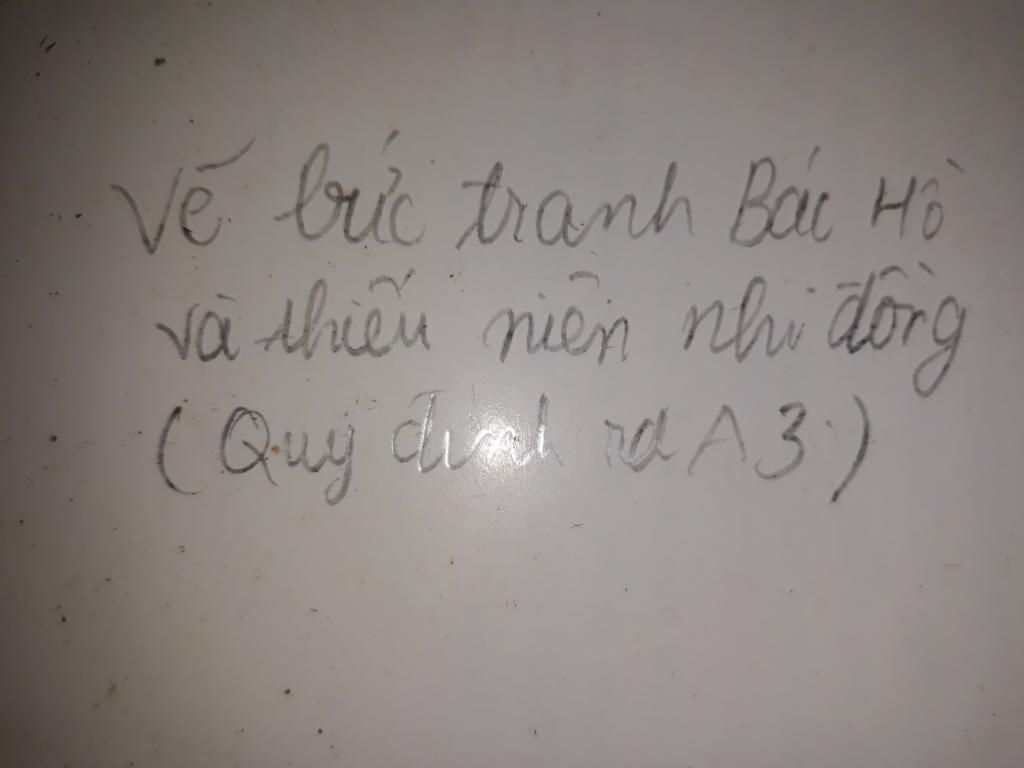 Vẽ bức tranh Bác Hồ
và thiếu niên nhi đồng
(Quy định ra A3)